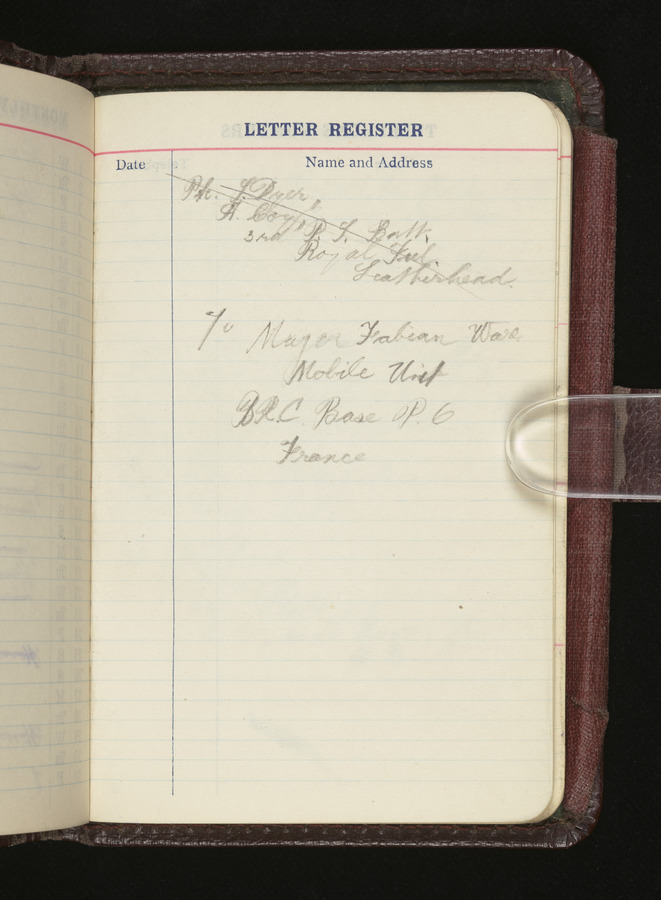 LETTER REGISTER
Date Name and Address
Pte. J. Dyer,
A. Coy,
3rd P. S. Batt.
Royal Fusl.
Leatherhead.
Major Fabian Ware
Mobile Unit
B.R.C. Base P. 6
France